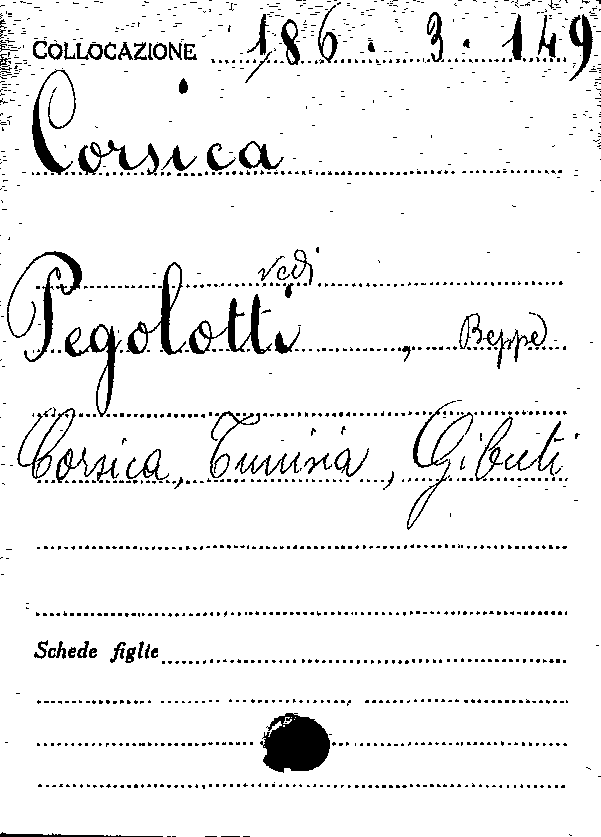 COLLOCAZIONE 186. 3. 149
Corsica
vedi
Pegolotti, Beppe
Corsica, Tunisia, Gibuti
Schede figlie